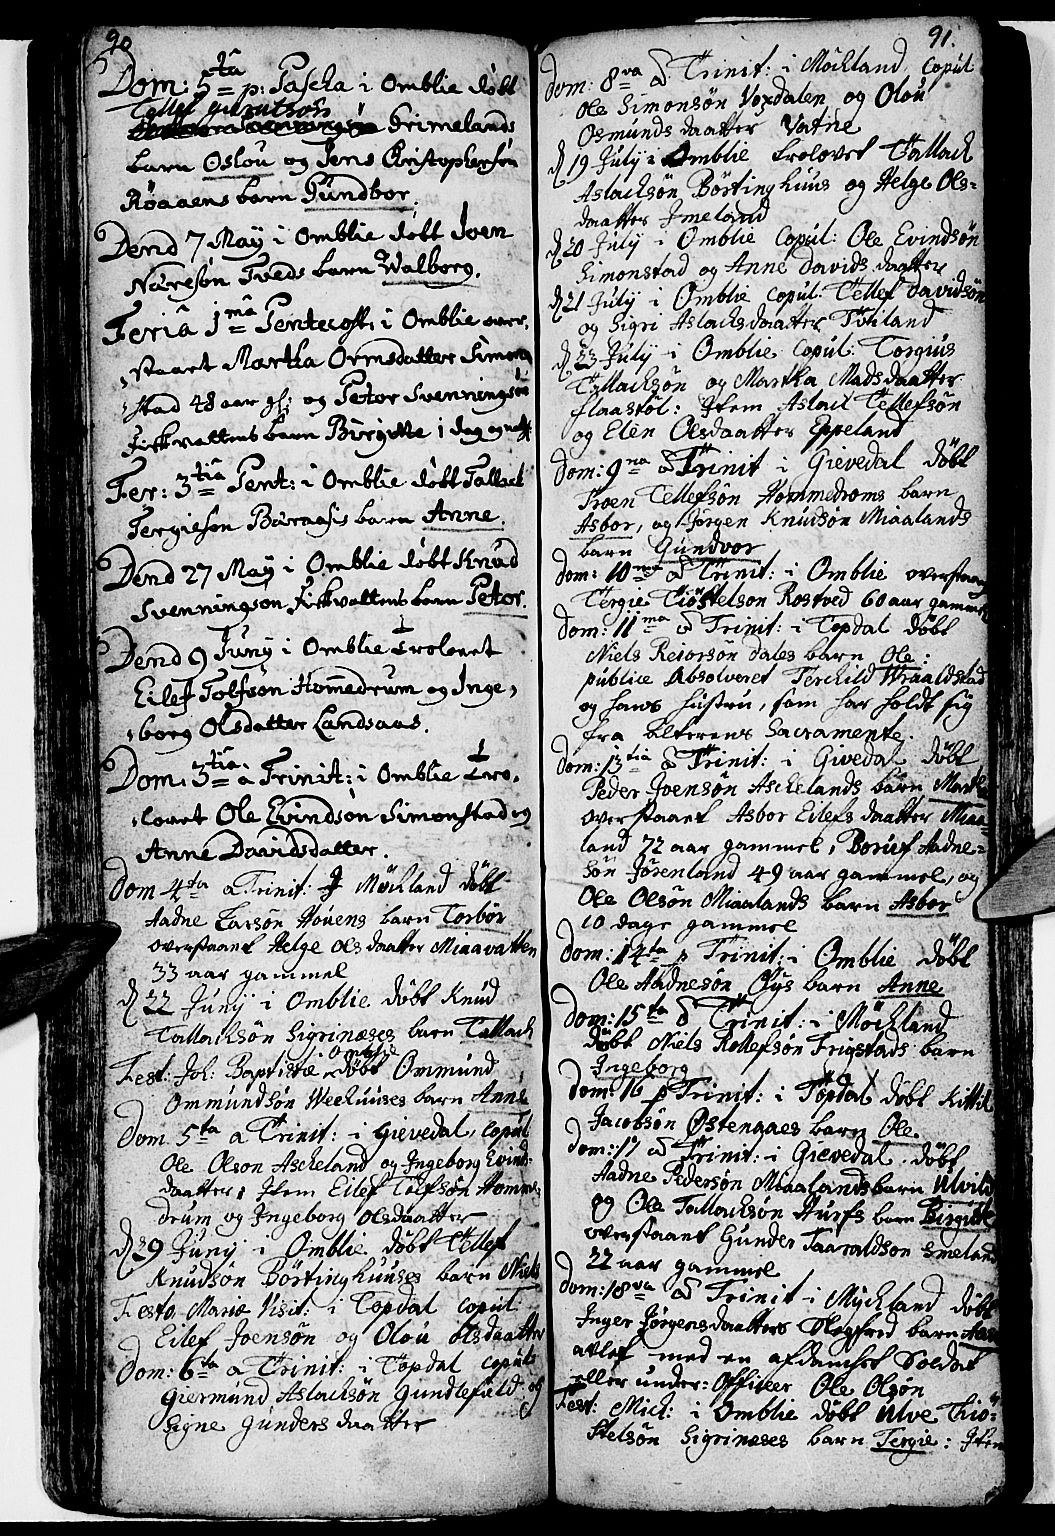 90
Dom: 5ta p: Pascha i Omblie döbt
Tellef Knutsøn
Grimelands
barn Oslou og Jens Christophersøn
Røaaens barn Gundbor.
Dend 7 May i Omblie döbt Joen
Näresøn Tveds barn Walborg.
Feria 1mâ Pentecost: i Omblie over,
,staaet Martha Ormsdatter Simon,
,stad 48 aar gl: og Peter Svenningsøn
Fiskvattens barn Birgitte 1 dag og natt
Fer: 3tiâ Pent: i Omblie döbt Tallack
Tergiesøn Buraasis barn Anne.
Dend 27 May i Omblie döbt Knud
Svenningsøn Fiskvattens barn Peter.
Dend 9 Juny i Omblie Trolovet
Eilef Tolfsøn Hommedrum og Inge,
,borg Olsdatter Landsaas.
Dom: 3tia. a Trinit: i Omblie Tro,
,lovet Ole Evindsøn Simonstad og
Anne Davidsdatter.
Dom 4ta a Trinit: I Möckland döbt
Aadne Larsøn Houens barn Torbör
overstaaet Helge Olsdaatter Miaavatten
33 aar gammel
d 22 Juny i Omblie döbt Knud
Tallacksön Sigrinæses barn Tallack
Fest: Joh: Baptistæ i Omblie döbt Ommund
Ommundsøn Weehuuses barn Anne
Dom 5ta a Trinit: i Gievedal, Copul
Ole Olson Ascheland og Ingeborg Evinds
daatter; Item Eilef Tolfsøn Homme,
drum og Ingeborg Olsdaatter
d 29 Juny i Omblie döbt Tellef
Knudsøn Börtinghuuses barn Niels
Festo Mariæ Visit: i Topdal copul:
Eilef Joensøn og Olou Olsdaatter
Dom: 6ta a Trinit: i Topdal copul:
Giermund Aslacksøn Gundlefuld og
Signe Gunders daatter
91.
dom: 8va a Trinit: i Möckland, Copul
Ole Simonsön Voxdalen og Olou
Osmunds daatter Vatne
d 19 July i Omblie trolovet Tallack
Aslacksön Börtinghuus og Helge Ols-
daatter Imeland
d 20 July i Omblie Copul: Ole Evindsön
Simonstad og Anne Davids daatter
d 21 July i Omblie copul: Tellef Davidsön
og Sigri Aslachsdaatter Tötiland
d 23 July i Omblie copul: Torgius
Tallacksön og Martha Madsdaatter
flaastöl: Item Aslack Tellefsön
og Elen Olsdaatter Eppeland
dom: 9na a Trinit i Gievedal döbt
Troen Tellefsön Hommedroms barn
Asbor, og Jörgen Knudsön Miaalands
barn Gundvor
dom: 10ma a Trinit: i Omblie overstaaet
Tergie Tiöstelson Rostved 60 aar gammel
dom: 11ma a Trinit: i Topdal döbt
Niels Reiorson dales barn Ole:
publice Absolveret Terchild Wraaldstad
og hans hustru, som har holdt sig
fra Alterens Sacramente.
dom: 13tia a Trinit: i Givedal döbt
Peder Joensön Aschelands barn Marthe
overstaaet Asbor Eilefs daatter Miaa-
land 72 aar gammel, Boruf Aadne-
sön Jörenland 49 aar gammel, og
Ole Olsön Miaalands barn Asbor
10 dage gammel
dom: 14ta p Trinit: i Omblie döbt
Ole Aadnesön Öys barn Anne
dom: 15ta a Trinit: i Möckland
döbt Niels Rollefsön Frigstads barn
Ingeborg
dom: 16 p Trinit: i Topdal döbt Kittil
Jacobsön Ostenaaes barn Ole.
dom: 17 a Trinit: i Gievedal döbt
Aadne Pedersön Miaalands barn Ulvild
og Ole Tallacksön Hurfs barn Birgitte
overstaaet Gunder Taaraldson Smeland
22 aar gammel
dom: 18va a Trinit i Myckland döbt
Inger Jörgensdaatters Slegfred barn
avlet med en afdancket Soldat
eller under: Officer Ole Olsön
Fest: Mich: i Omblie döbt Ulve Tiö-
stelsön Sigrinæses barn Tergie: Item